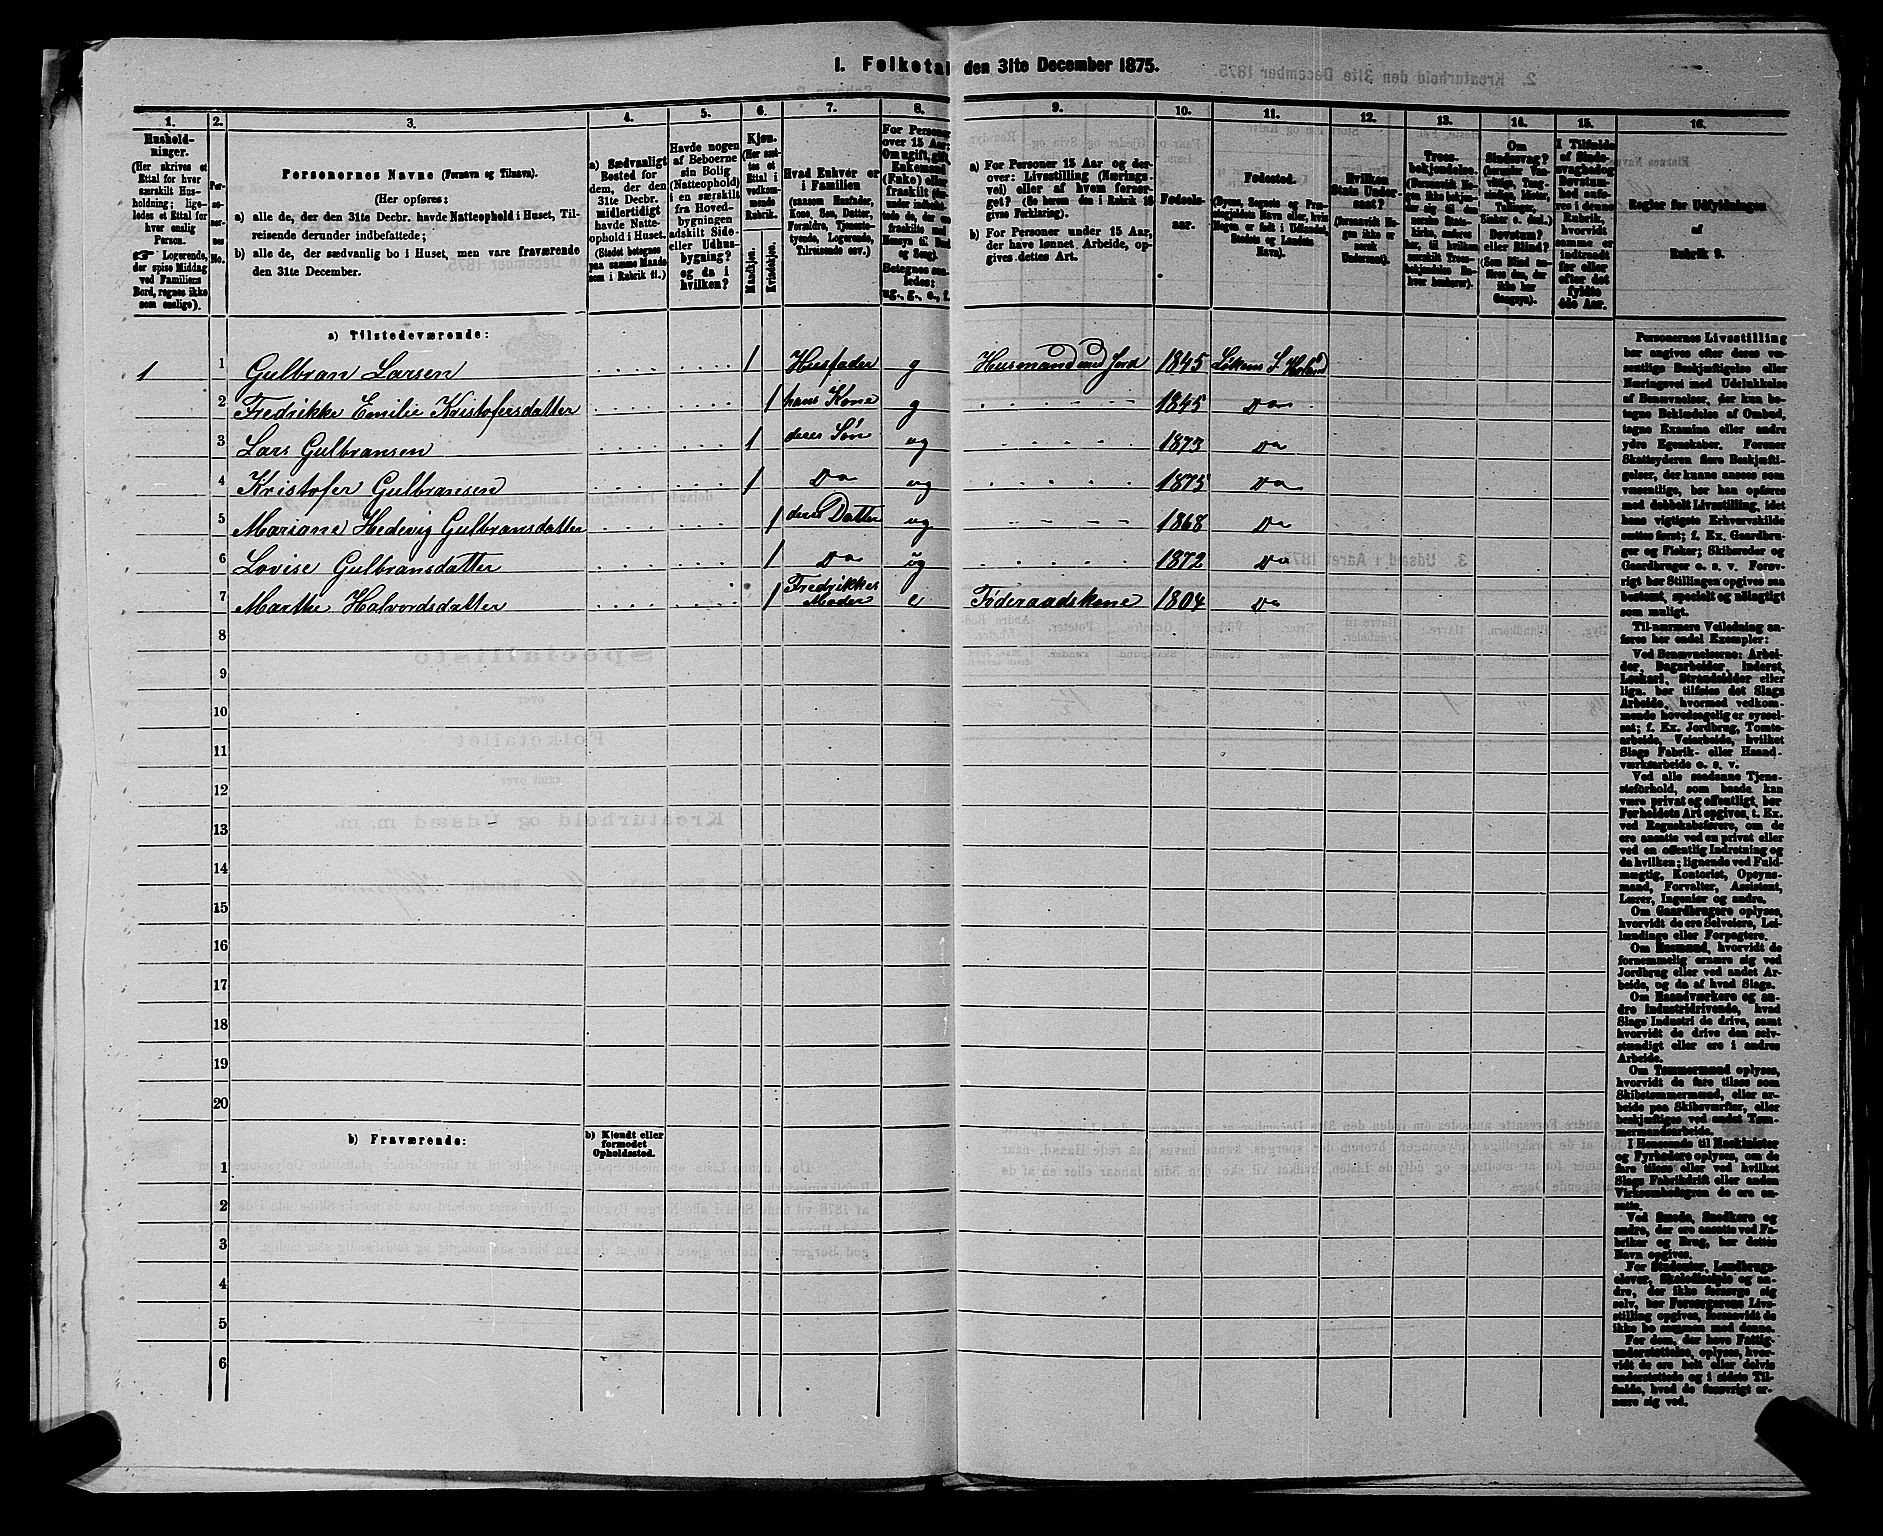 1. Folketal den 31te December 1875.
1. 2. 3. 4. 5. 6. 7. 8. 9. 10. 11. 12. 13. 14. 15. 16.
Hushold-
ninger.
(Her skrives et
Ettal for hver
særskilt Hus-
holdning; lige-
ledes et Ettal for
hver enslig
Person.
☞ Logerende,
der spise Middag
ved Familiens
Bord, regnes ikke
som enslige).
Per-
soner-
nes
No.
Personernes Navne (Fornavn og Tilnavn).
(Her opføres:
a) alle de, der den 31te Decbr. havde Natteophold i Huset, Til-
reisende derunder indbefattede;
b) alle de, der sædvanlig bo i Huset, men vare fraværende
den 31te December.
a) Sædvanligt
Bosted for
dem, der den
31te Decbr.
midlertidigt
havde Natte-
ophold i Huset.
(Stedet betegnes
paa samme Maade
som i Rubrik 11.)
Havde nogen
af Beboerne
sin Bolig
(Natteophold)
i en særskilt
fra Hoved-
bygningen
adskilt Side-
eller Udhus-
bygning?
og da i
hvilken?
Kjøn.
(Her sæt-
tes et
Ettal i
vedkom-
mende
Rubrik.
Mandkjøn.
Kvindekjøn.
Hvad Enhver er
i Familien
(saasom Husfader,
Kone, Søn, Datter,
Forældre, Tjeneste-
tyende, Logerende,
Tilreisende osv.)
For Personer
over 15 Aar:
Om ugift, gift,
Enkemand
(Enke) eller
fraskilt
Betegnes saa-
ledes:
ug., g., e., f.
a) For Personer 15 Aar og der-
over: Livsstilling (Nærings-
vei) eller af hvem forsør-
get? (Se herom den i Rubrik 16
givne Forklaring).
b) For Personer under 15 Aar,
der have lønnet Arbeide, op-
gives dettes Art.
Fødsels-
aar.
Fødested.
(Byens, Sognets og Præ-
stegjeldets Navn eller, hvis
Nogen er født i Udlandet,
Stedets og Landets
Navn).
Hvilken
Stats Under-
saat?
(forsaavidt No-
gen ikke er
norsk
Undersaat).
Troes-
bekjendelse.
Om
Sindssvag?
Døvstum?
eller Blind?
I Tilfælde
af Sinds-
svaghed
og
Døvstum-
hed
Regler for Udfyldningen
af
Rubrik 9.
a) Tilstedeværende:
1 1 Gulbran Larsen 1 Husfader g Husmand med Jord 1845 Løkens S. Høland
2 Fredrikke Emilie Kristofersdatter 1 hans Kone g 1845 Do
3 Lars Gulbransen 1 deres Søn ug 1873 Do
4 Kristofer Gulbransen 1 Do ug 1875 Do
5 Mariane Hedevig Gulbransdatter 1 deres Datter ug 1868 Do
6 Lovise Gulbransdatter 1 Do ug 1872 Do
7 Marthe Halvordsdatter 1 Fredrikkes Moder e Føderaadskone 1804 Do
8
9
10
11
12
13
14
15
16
17
18
19
20
b) Fraværende:
b) Kjendt eller
formodet
Opholdssted.
1
2
3
4
5
6
Personernes Livsstilling
bør angives efter deres væ-
sentlige Beskjæftigelse eller
Næringsvei med Udelukkelse
af Benævnelser, der kun be-
tegne Beklædelse af Ombud,
tagne Examina eller andre
ydre Egenskaber. Forener
Skatteyderen flere Beskjæfti-
gelser, der kunne ansees som
væsentlige, bør han opføres
med dobbelt Livsstilling, idet
hans vigtigste Erhvervskilde
sættes først; f. Ex. Gaardbru-
ger og Fisker; Skibsreder og
Gaardbruger o. s. v. Forøv-
rigt bør Stillingen opgives saa
bestemt, specielt og nøiagtigt
som muligt.
Til nærmere Veiledning an-
føres her endel Exempler:
Ved Benævnelserne: Arbei-
der, Dagarbeider, Inderst,
Løskarl, Strandsidder eller
lign. bør tilføies det Slags
Arbeide, hvormed vedkom-
mende hovedsagelig er syssel-
sat; f. Ex. Jordbrug, Tomte-
arbeide, Veiarbeide, hvilket
Slags Fabrik- eller Haand-
værksarbeide o. s. v.
Ved alle saadanne Tjene-
steforhold, som baade kan
være privat og offentligt, bør
Forholdets Art opgives, t. Ex.
ved Regnskabsførere, om de
ere ansatte ved en privat eller
ved en offentlig Indretning og
da hvilken; lignende ved Fuld-
mægtig, Kontorist, Opsyns-
mand, Forvalter, Assistent,
Lærer, Ingeniør og andre.
Om Gaardbrugere oplyses,
hvorvidt de ere Selveiere, Lei-
lændinge eller Forpagtere.
Om Husmænd, hvorvidt de
fornemmelig ernære sig ved
Jordbrug eller ved andet Ar-
beide, og da af hvad Slags.
Om Haandværkere og an-
dre Industridrivende, hvad
Slags Industri de drive, samt
hvorvidt de drive den selv-
stændigt eller ere i andres
Arbeide.
Om Tømmermænd oplyses,
hvorvidt de fare tilsøs som
Skibstømmermænd, eller ar-
beide paa Skibsværfter, eller
beskjæftiges ved andet Tøm-
mermandsarbeide.
I Henseende til Maskinister
og Fyrbødere oplyses, om de
fare tilsøs eller ved hvilket
Slags Fabrikdrift eller anden
Virksomhedsgren de ere an-
satte.
Ved Smede, Snedkere og
andre, der ere ansatte ved Fa-
briker og Brug, bør dettes
Navn opgives.
For Studenter, Landbrugs-
elever, Skoledisciple og an-
dre, der ikke forsørge sig
selv, bør Forsørgerens Livs-
stilling opgives, forsaavidt de
ikke bo sammen med denne.
For dem, der have Fattig-
understøttelse, oplyses, hvor-
vidt de ere helt eller delvis
understøttede og i sidste Til-
fælde, hvad de forøvrigt er-
nære sig ved.